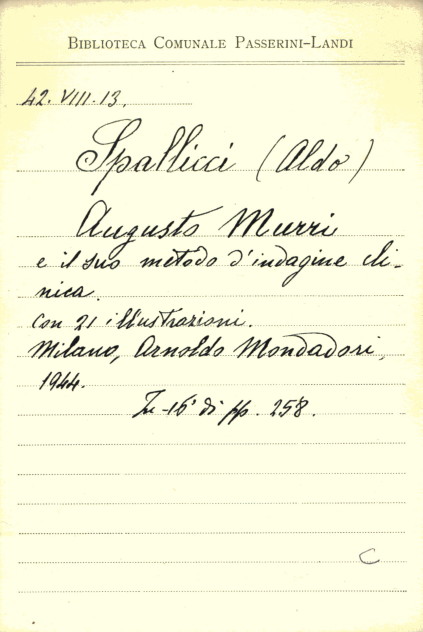 BIBLIOTECA COMUNALE PASSERINI-LANDI
42. VIII. 13.
Spallicci (Aldo)
Augusto Murri
e il suo metodo d'indagine cli-
nica.
Con 21 illustrazioni.
Milano, Arnoldo Mondadori,
1944.
In-16° di pp. 258.
C